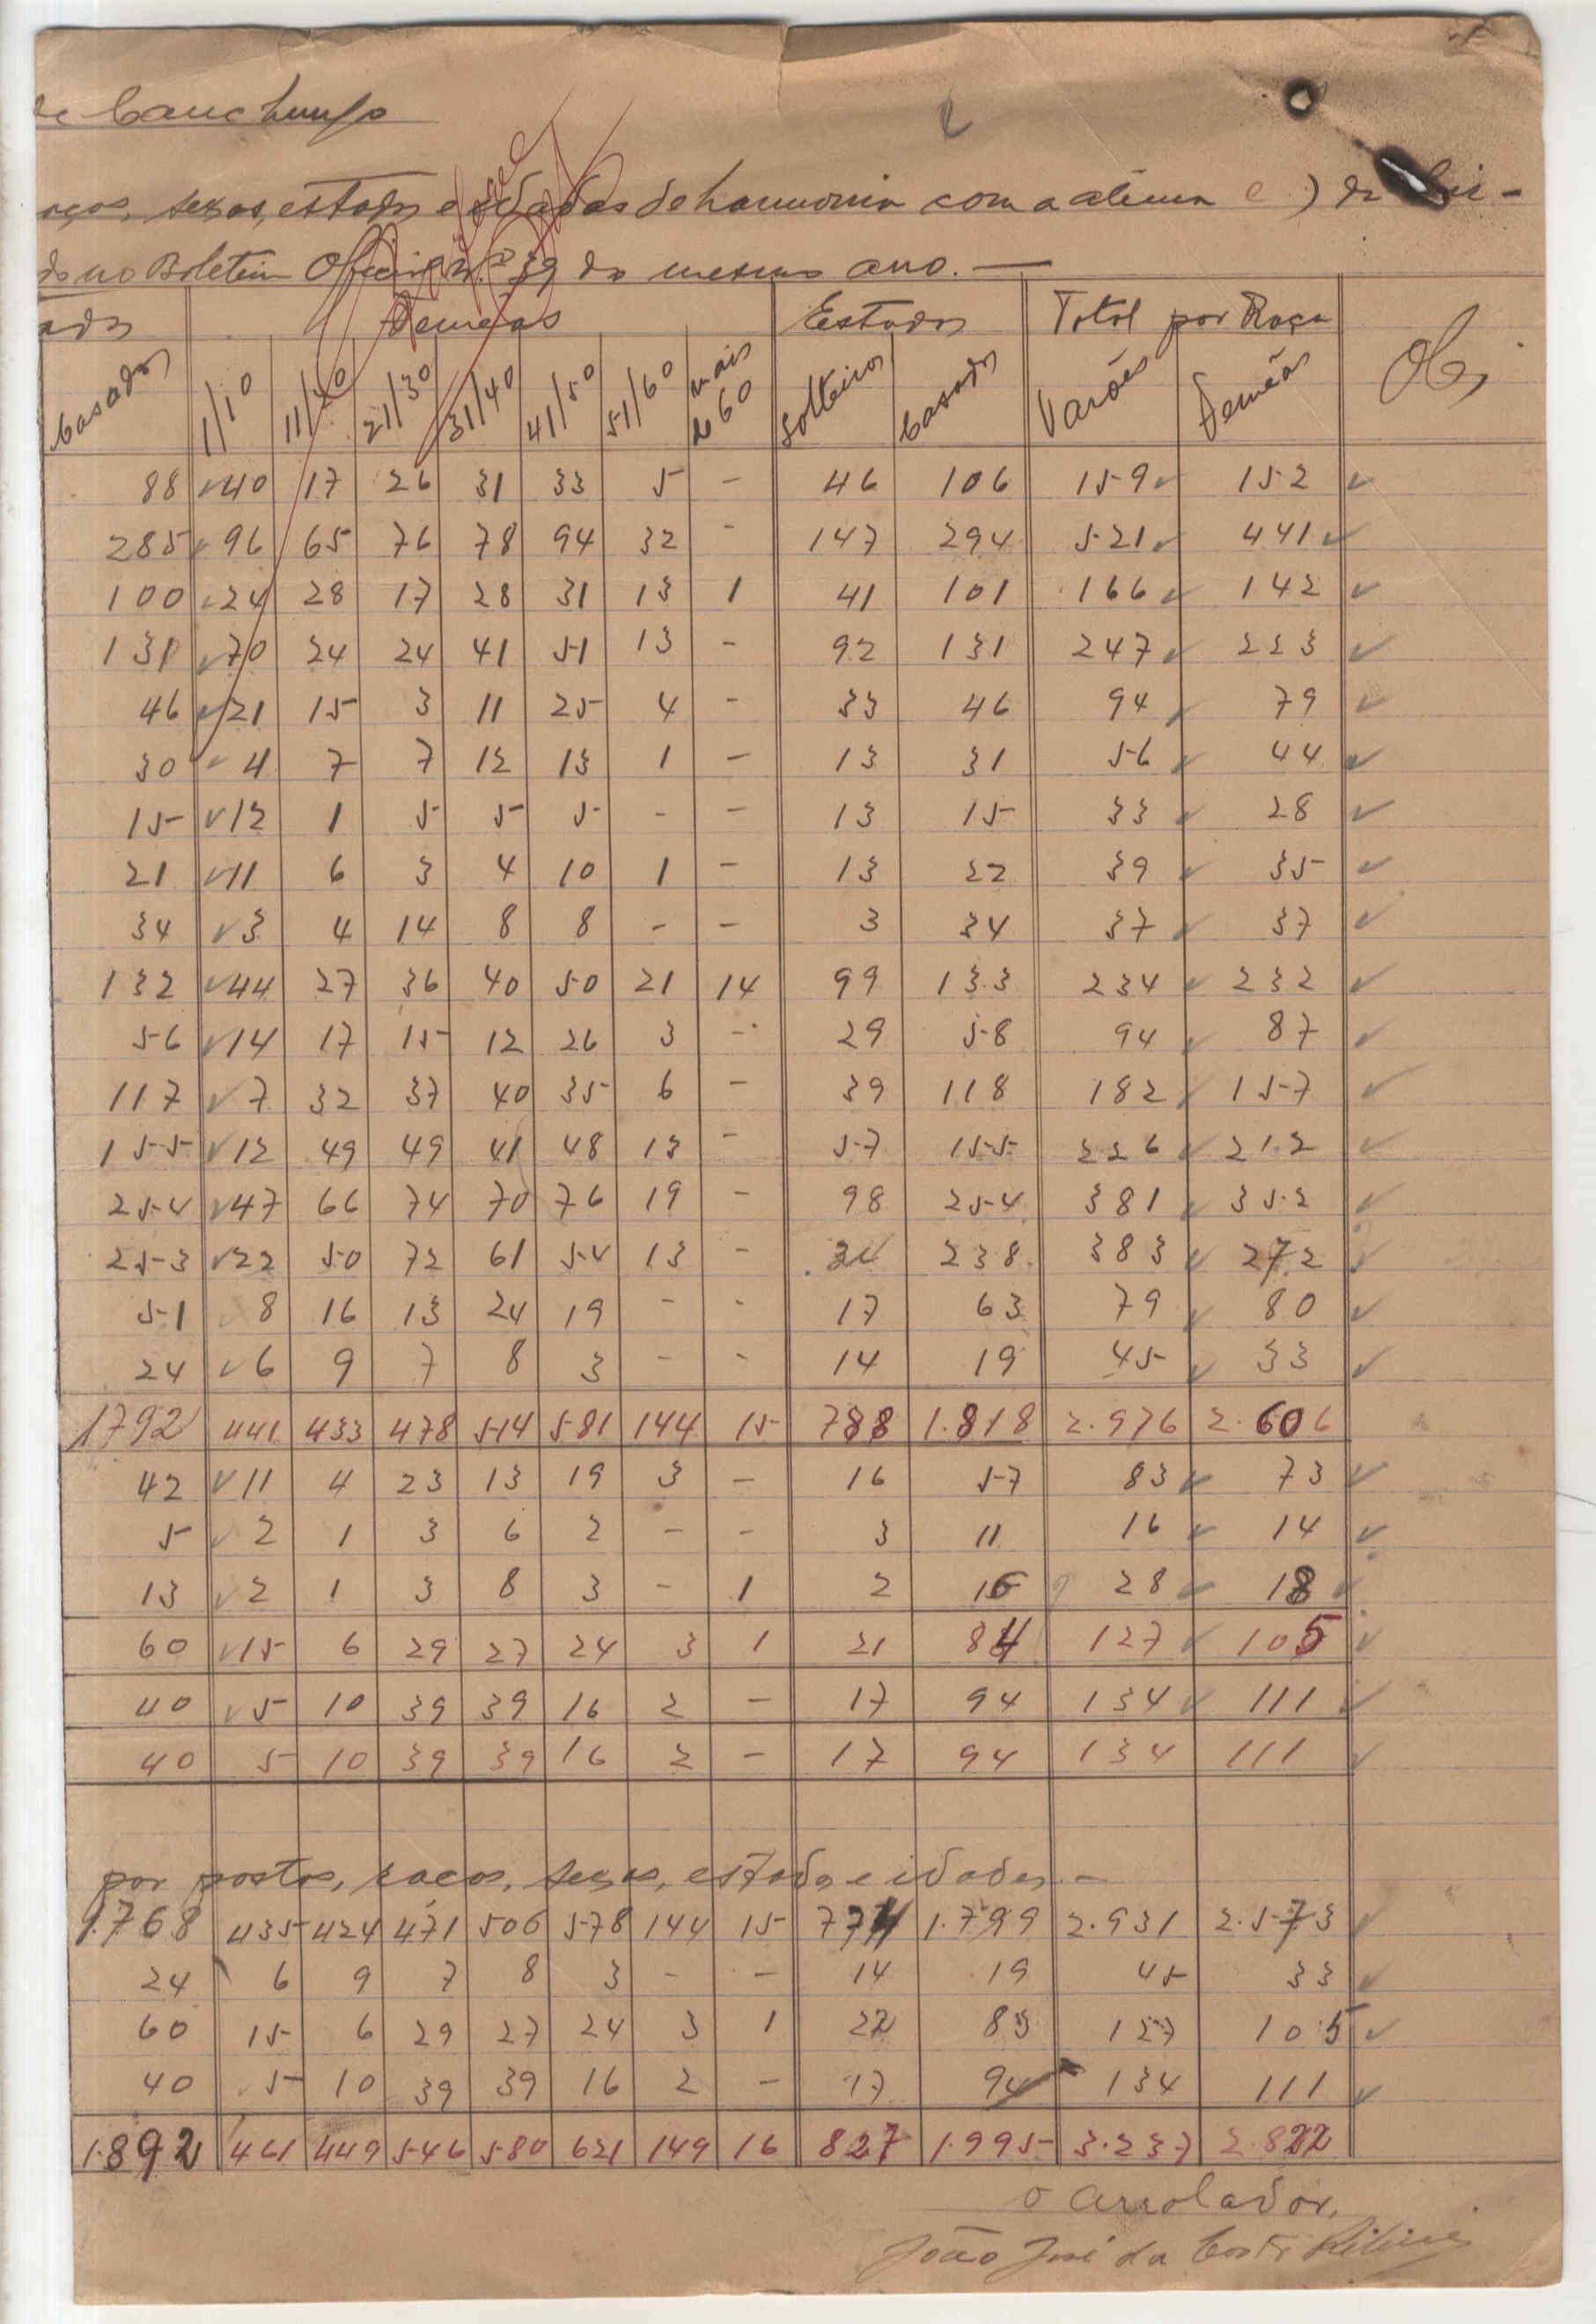 de Canchungo
aços, sexos, estados e idades de harmonia com a alinea e) da Cir-
do no Boletim Oficial n.º 39 do mesmo ano. —
ados Femeas Estados Total por Raça Obs
Casados 1/10 11/20 21/30 31/40 41/50 51/60 mais de 60 Solteiros Casados Varões Femêas
88 40 17 26 31 33 5 - 46 106 159 152
285 96 65 76 78 94 32 - 147 294 521 441
100 24 28 17 28 31 13 1 41 101 166 142
131 70 24 24 41 51 13 - 92 131 247 223
46 21 15 3 11 25 4 - 33 46 94 79
30 4 7 7 12 13 1 - 13 31 56 44
15 12 1 5 5 5 - - 13 15 33 28
21 11 6 3 4 10 1 - 13 22 39 35
34 3 4 14 8 8 - - 3 34 37 37
132 44 27 36 40 50 21 14 99 133 234 232
56 14 17 15 12 26 3 - 29 58 94 87
117 7 32 37 40 35 6 - 39 118 182 157
155 12 49 49 41 48 13 - 57 155 226 212
254 47 66 74 70 76 19 - 98 254 381 352
253 22 50 72 61 54 13 - 34 238 383 272
51 8 16 13 24 19 - - 17 63 79 80
24 6 9 7 8 3 - - 14 19 45 33
1792 441 433 478 514 581 144 15 788 1.818 2.976 2.606
42 11 4 23 13 19 3 - 16 57 83 73
5 2 1 3 6 2 - - 3 11 16 14
13 2 1 3 8 3 - 1 2 16 28 18
60 15 6 29 27 24 3 1 21 84 127 105
40 5 10 39 39 16 2 - 17 94 134 111
40 5 10 39 39 16 2 - 17 94 134 111
por postos, raças, sexos, estados e idades. —
1.768 435 424 471 506 578 144 15 774 1.799 2.931 2.573
24 6 9 7 8 3 - - 14 19 45 33
60 15 6 29 27 24 3 1 22 83 127 105
40 5 10 39 39 16 2 - 17 94 134 111
1.892 461 449 546 580 621 149 16 827 1.995 3.237 2.822
O Arrolador,
João José da Costa Ribeiro